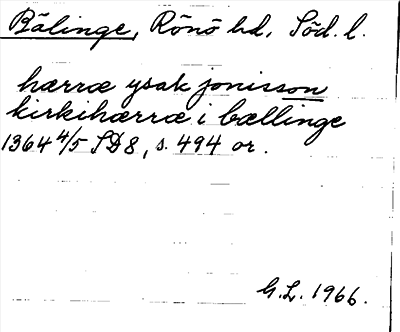 Bälinge, Rönö hd, Söd. l.
hærræ ysak jonisson
kirkihærræ i bællinge
1364 4/5 SD 8, s. 494 or.
G.L. 1966.